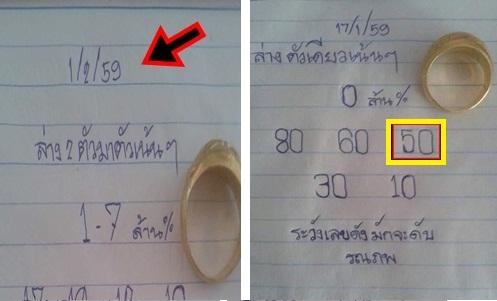 1/2/59
ล่าง 2 ตัวมาตัวเน้นๆ
1-7 ล้าน%
17/1/59
ล่างตัวเดียวเน้นๆ
0 ล้าน%
80 60 50
30 10
ระวังเลขดังมักจะดับ
รณภพ